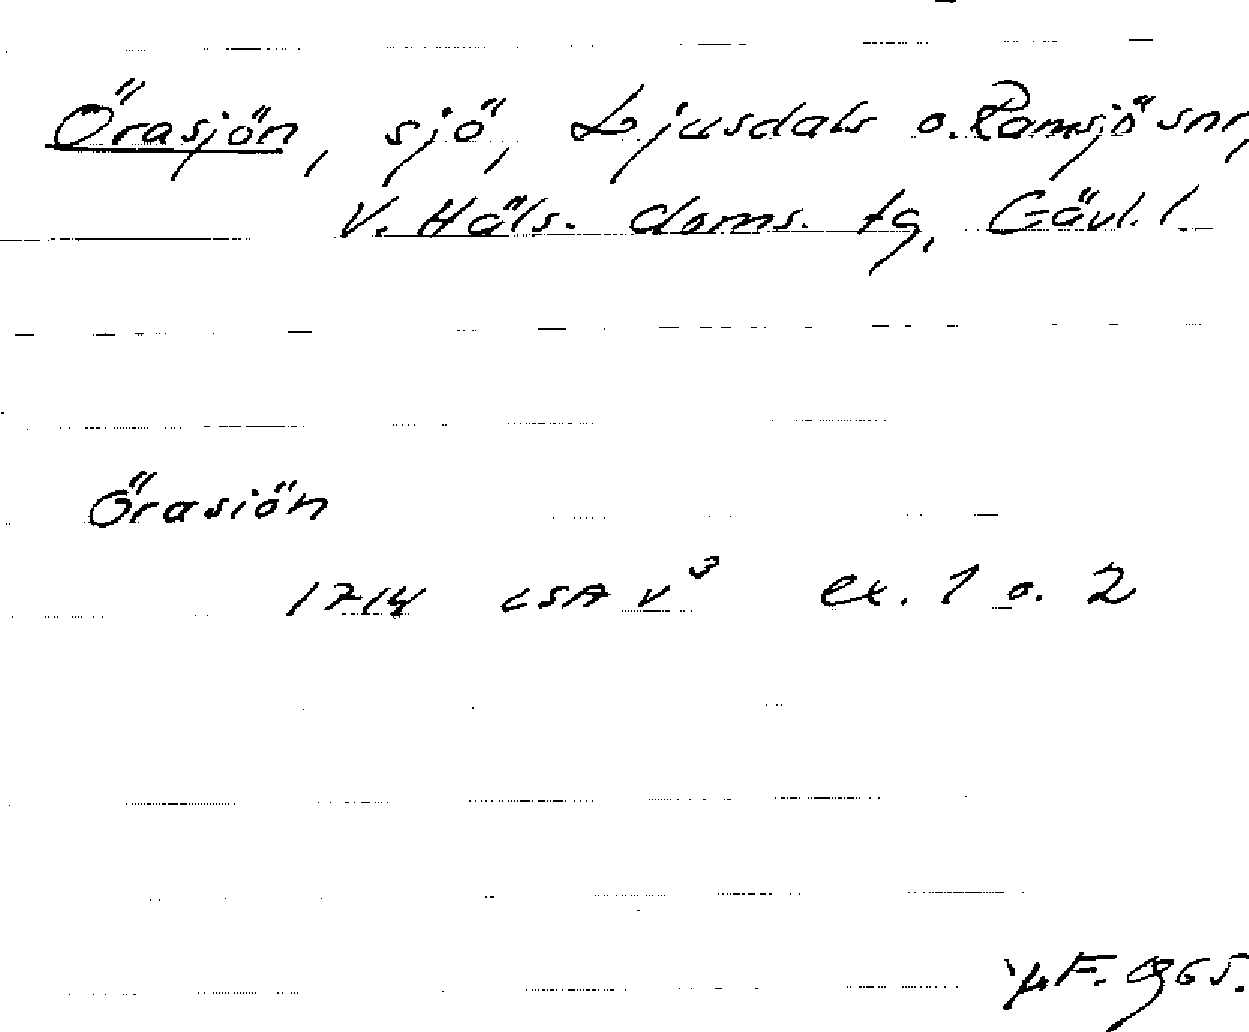 Örasjön, sjö, Ljusdals o. Ramsjö snr,
V. Häls. doms. tg, Gävl. l.
Örasiön
1714 LSA V³ ex. 1 o. 2